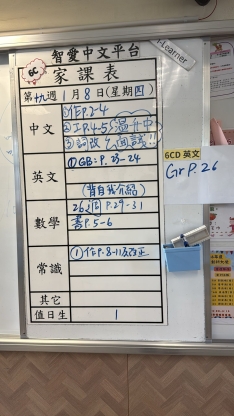 智愛中文平台
i-Learner
6C
家課表
第十九週 1月8日(星期四)
中文
①作P.2-4
②工P.4-5 溫升中
③詞改
英文
①GB:P.23-24
(背自我介紹)
6CD 英文
Gr P.26
數學
P.29-31
書P.5-6
常識
①作P.8-11及改正
其它
值日生
1